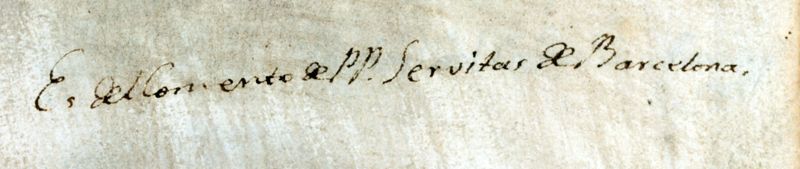 Es del Convento de PP. Servitas de Barcelona.